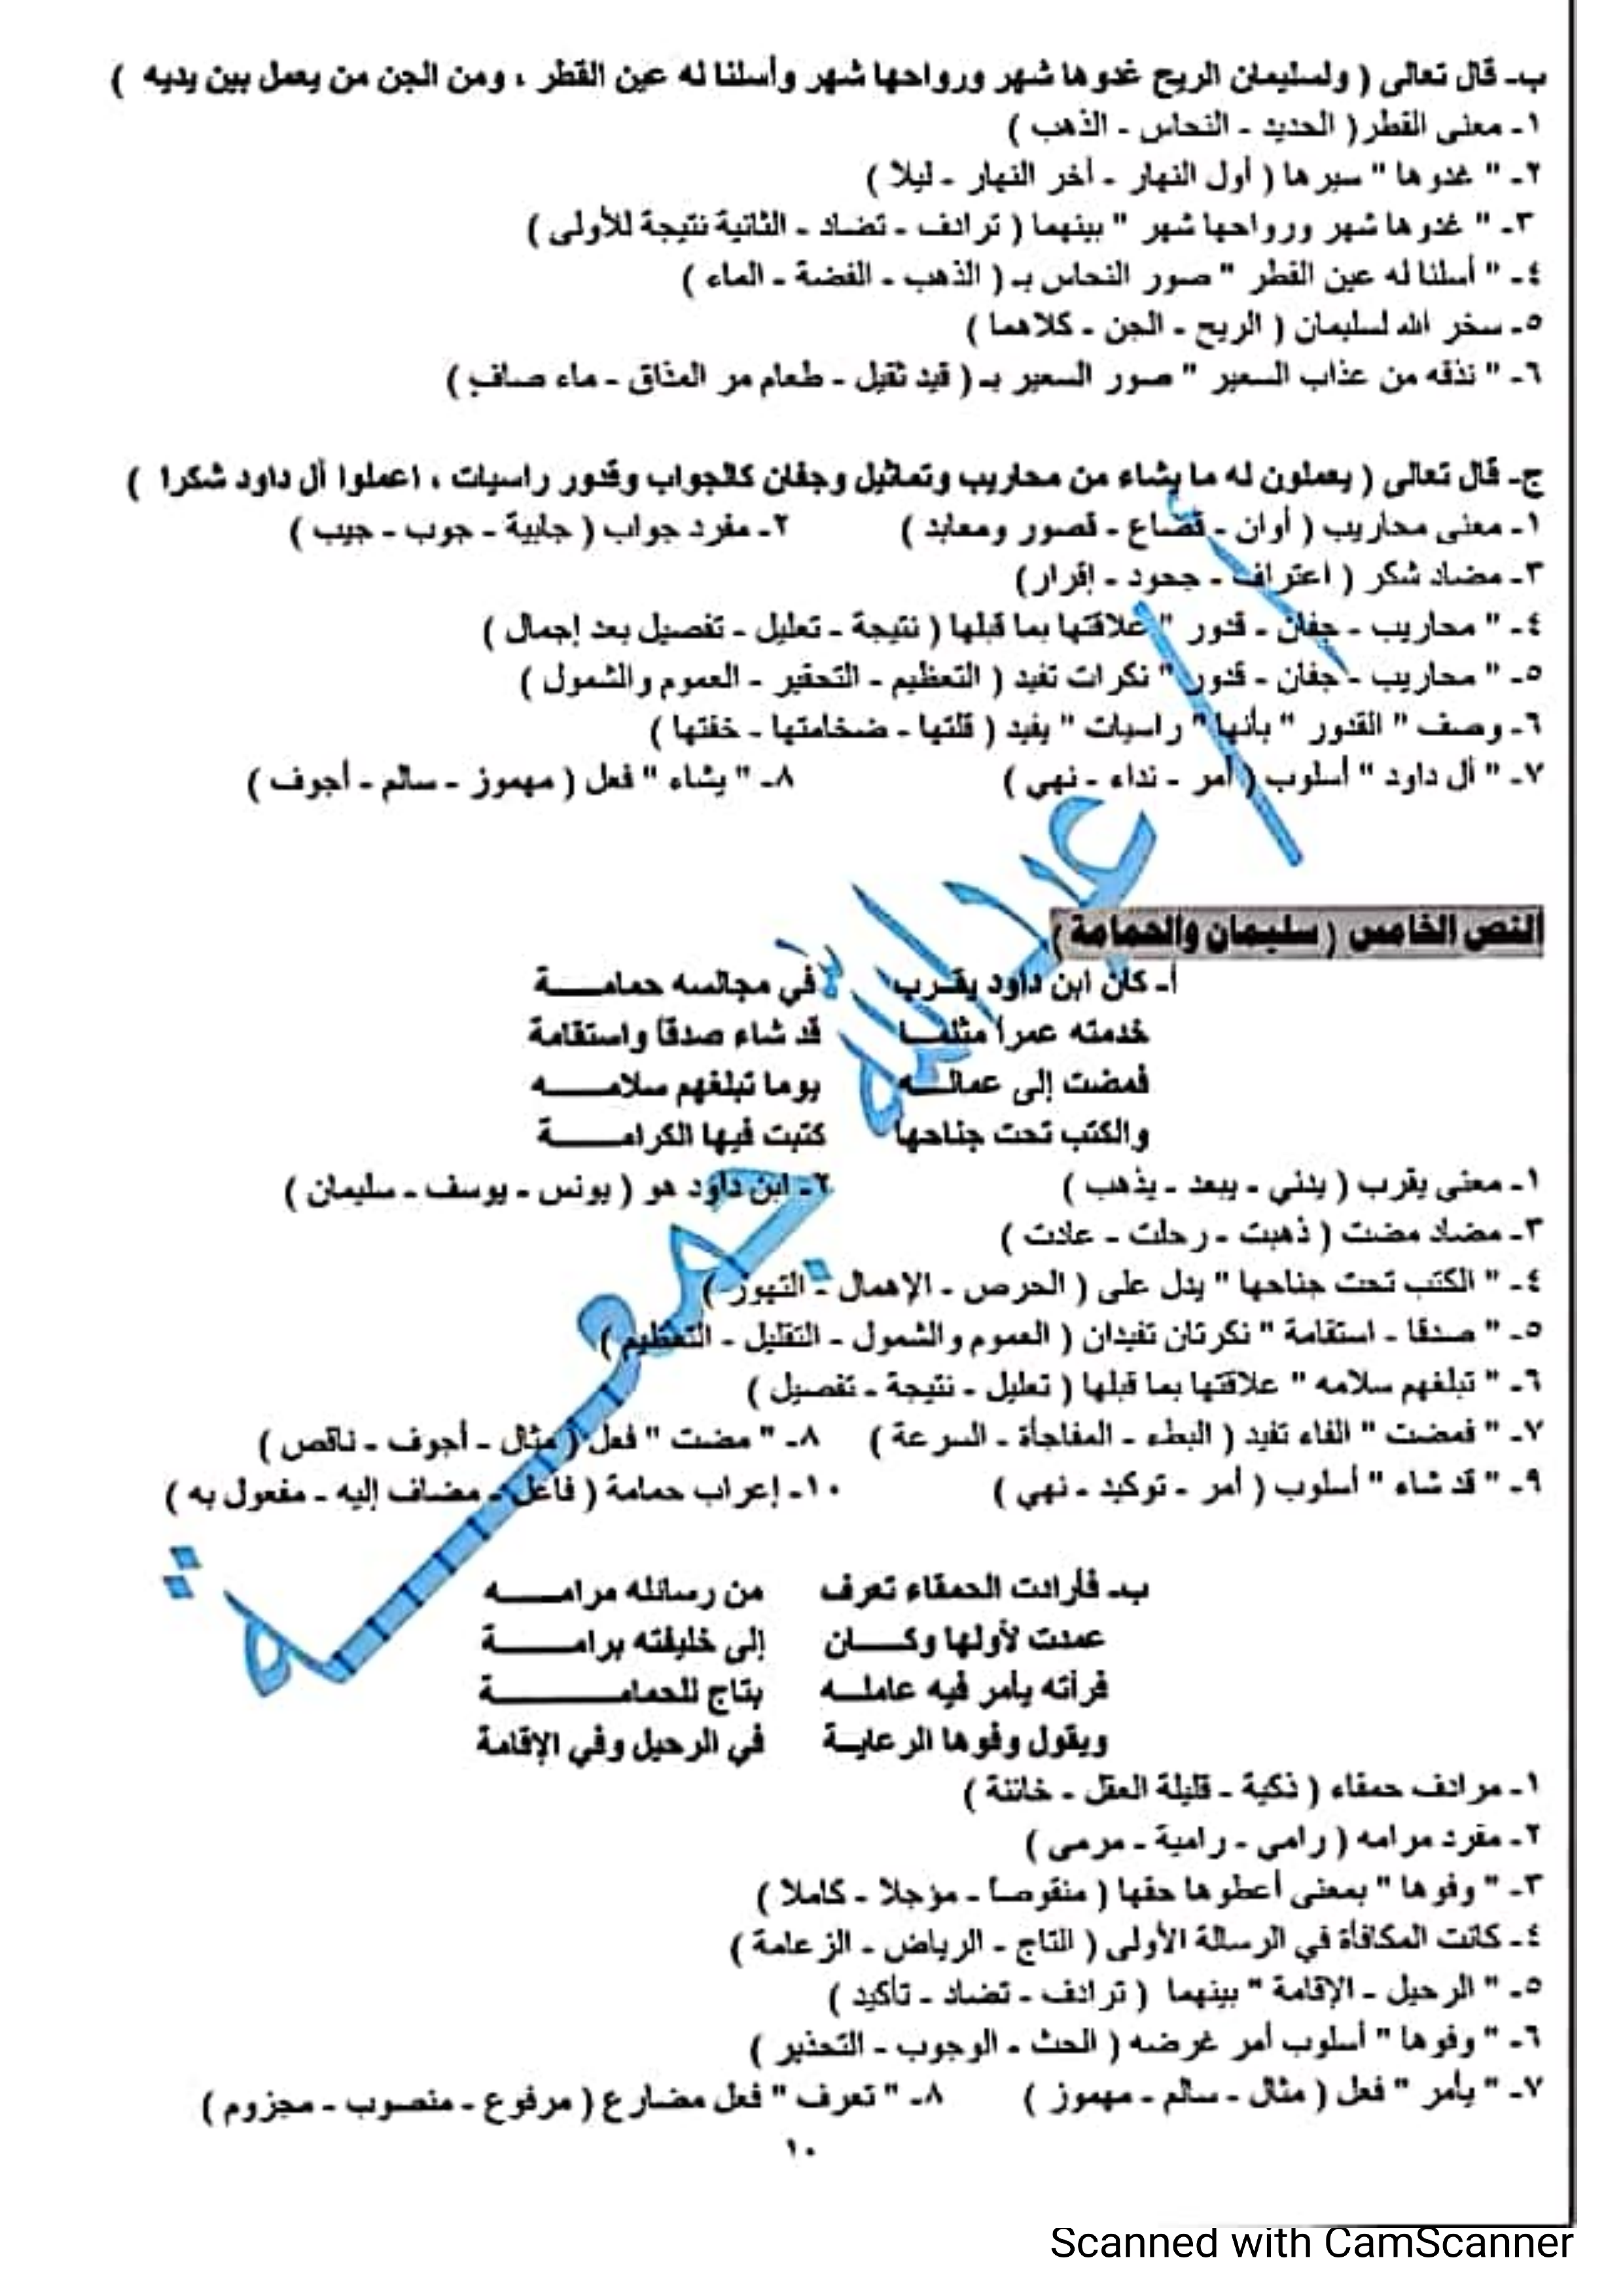 ب- قال تعالى ( ولسليمان الريح غدوها شهر ورواحها شهر وأسلنا له عين القطر ، ومن الجن من يعمل بين يديه )
١- معنى القطر ( الحديد - النحاس - الذهب )
٢- " غدوها " سيرها ( أول النهار - أخر النهار - ليلا )
٣- " غدوها شهر ورواحها شهر " بينهما ( ترادف - تضاد - الثانية نتيجة للأولى )
٤- " أسلنا له عين القطر " صور النحاس بـ ( الذهب - الفضة - الماء )
٥- سخر الله لسليمان ( الريح - الجن - كلاهما )
٦- " نذقه من عذاب السعير " صور السعير بـ ( قيد ثقيل - طعام مر المذاق - ماء صاف )
ج- قال تعالى ( يعملون له ما يشاء من محاريب وتماثيل وجفان كالجواب وقدور راسيات ، اعملوا آل داود شكرا )
١- معنى محاريب ( أوان - قصاع - قصور ومعابد ) ٢- مفرد جواب ( جابية - جوب - جيب )
٣- مضاد شكر ( اعتراف - جحود - إقرار )
٤- " محاريب - جفان - قدور " علاقتها بما قبلها ( نتيجة - تعليل - تفصيل بعد إجمال )
٥- " محاريب - جفان - قدور " نكرات تفيد ( التعظيم - التحقير - العموم والشمول )
٦- وصف " القدور " بأنها " راسيات " يفيد ( قلتها - ضخامتها - خفتها )
٧- " آل داود " أسلوب ( أمر - نداء - نهي ) ٨- " يشاء " فعل ( مهموز - سالم - أجوف )
النص الخامس ( سليمان والحمامة )
أ- كان ابن داود يقـرب في مجالسه حمامـــة
خدمته عمرا مثلمـا قد شاء صدقا واستقامة
فمضت إلى عمالـــه يوما تبلغهم سلامـــه
والكتب تحت جناحها كتبت فيها الكرامـــة
١- معنى يقرب ( يدني - يبعد - يذهب ) ٢- ابن داود هو ( يونس - يوسف - سليمان )
٣- مضاد مضت ( ذهبت - رحلت - عادت )
٤- " الكتب تحت جناحها " يدل على ( الحرص - الإهمال - التهور )
٥- " صدقا - استقامة " نكرتان تفيدان ( العموم والشمول - التقليل - التعظيم )
٦- " تبلغهم سلامه " علاقتها بما قبلها ( تعليل - نتيجة - تفصيل )
٧- " فمضت " الفاء تفيد ( البطء - المفاجأة - السرعة ) ٨- " مضت " فعل ( مثال - أجوف - ناقص )
٩- " قد شاء " أسلوب ( أمر - توكيد - نهي ) ١٠- إعراب حمامة ( فاعل - مضاف إليه - مفعول به )
ب- فأرادت الحمقاء تعرف من رسائله مرامـــه
عمدت لأولها وكـــان إلى خليفته برامـــة
فرأته يأمر فيه عاملـه بتاج للحمامـــة
ويقول وفوها الرعايـة في الرحيل وفي الإقامة
١- مرادف حمقاء ( ذكية - قليلة العقل - خائنة )
٢- مفرد مرامه ( رامي - رامية - مرمى )
٣- " وفوها " بمعنى أعطوها حقها ( منقوصاً - مؤجلا - كاملا )
٤- كانت المكافأة في الرسالة الأولى ( التاج - الرياض - الزعامة )
٥- " الرحيل - الإقامة " بينهما ( ترادف - تضاد - تأكيد )
٦- " وفوها " أسلوب أمر غرضه ( الحث - الوجوب - التحذير )
٧- " يأمر " فعل ( مثال - سالم - مهموز ) ٨- " تعرف " فعل مضارع ( مرفوع - منصوب - مجزوم )
١٠
أ / عبدالله جمعة
Scanned with CamScanner